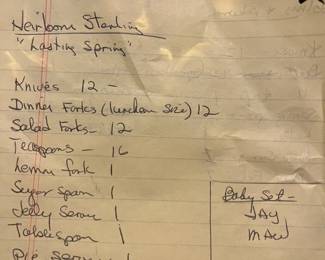 Heirloom Sterling
"Lasting Spring"
Knives 12 -
Dinner Forks (luncheon size) 12
Salad Forks - 12
Teaspoons - 16
Lemon fork 1
Sugar spoon 1
Jelly Server 1
Tablespoon 1
Pie server 1
Baby Set -
JAY